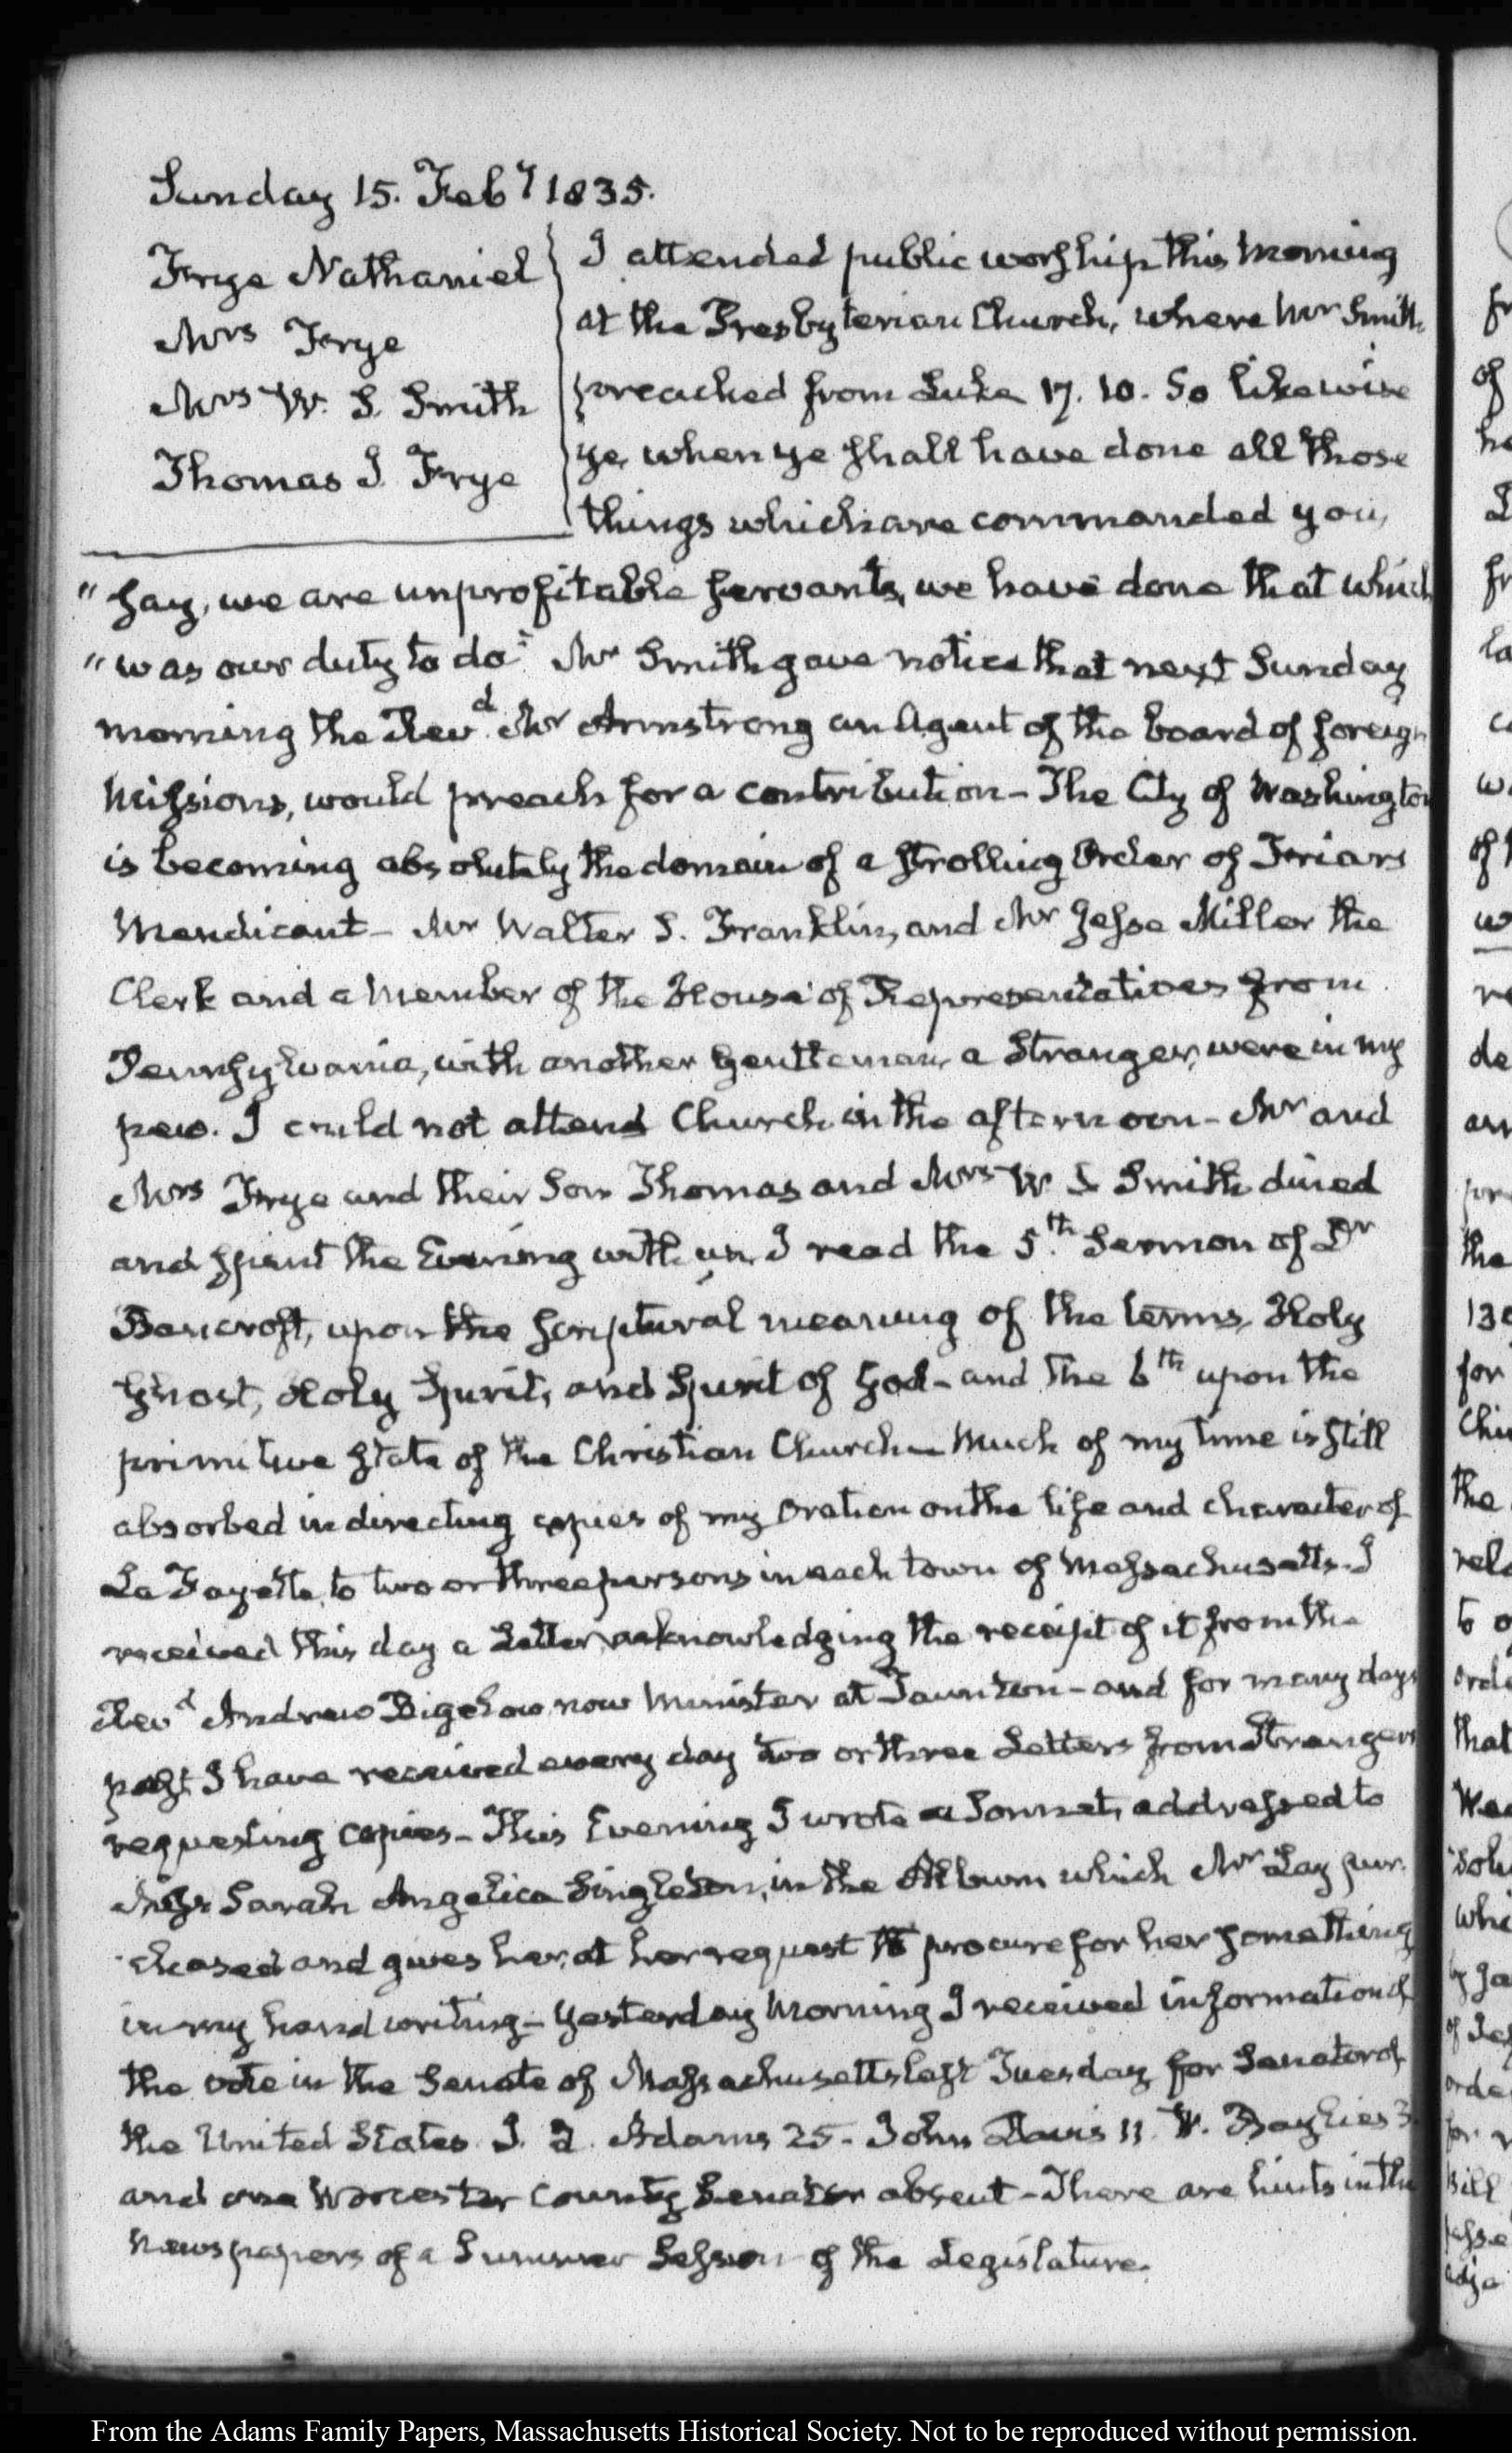 Sunday 15. Feby 1835.
Frye Nathaniel
Mrs Frye
Mrs W. S. Smith
Thomas J. Frye
I attended public worship this morning
at the Presbyterian Church, where Mr Smith
preached from Luke 17. 10. So likewise
ye, when ye shall have done all those
things which are commanded you,
" say, we are unprofitable servants, we have done that which
" was our duty to do." Mr Smith gave notice that next Sunday
morning the Revd. Mr Armstrong an Agent of the board of foreign
Missions, would preach for a contribution - The City of Washington
is becoming absolutely the domain of a strolling Order of Friars
Mendicant - Mr Walter S. Franklin, and Mr Jesse Miller the
Clerk and a Member of the House of Representatives from
Pennsylvania, with another Gentleman, a Stranger, were in my
pew. I could not attend Church in the afternoon - Mr and
Mrs Frye and their Son Thomas and Mrs W S Smith dined
and spent the Evening with us, I read the 5th. Sermon of Dr
Bancroft, upon the scriptural meaning of the terms, Holy
Ghost, Holy Spirit, and Spirit of God - and the 6th upon the
primitive state of the Christian Church - Much of my time is still
absorbed in directing copies of my Oration on the life and character of
La Fayette, to two or three persons in each town of Massachusetts. I
received this day a Letter, acknowledging the receipt of it from the
Revd Andrew Bigelow now Minister at Taunton - and for many days
past I have received every day two or three Letters from Strangers
requesting copies - This Evening I wrote a Sonnet, addressed to
Miss Sarah Angelica Singleton, in the Album which Mr Lay pur-
chased and gives her, at her request to procure for her something
in my hand writing - Yesterday Morning I received information of
the vote in the Senate of Massachusetts last Tuesday for Senator of
the United States J. Q. Adams 25 - John Davis 11. W. Baylies 3.
and one Worcester County Senator absent - There are hints in the
Newspapers of a Summer Session of the Legislature.
From the Adams Family Papers, Massachusetts Historical Society. Not to be reproduced without permission.